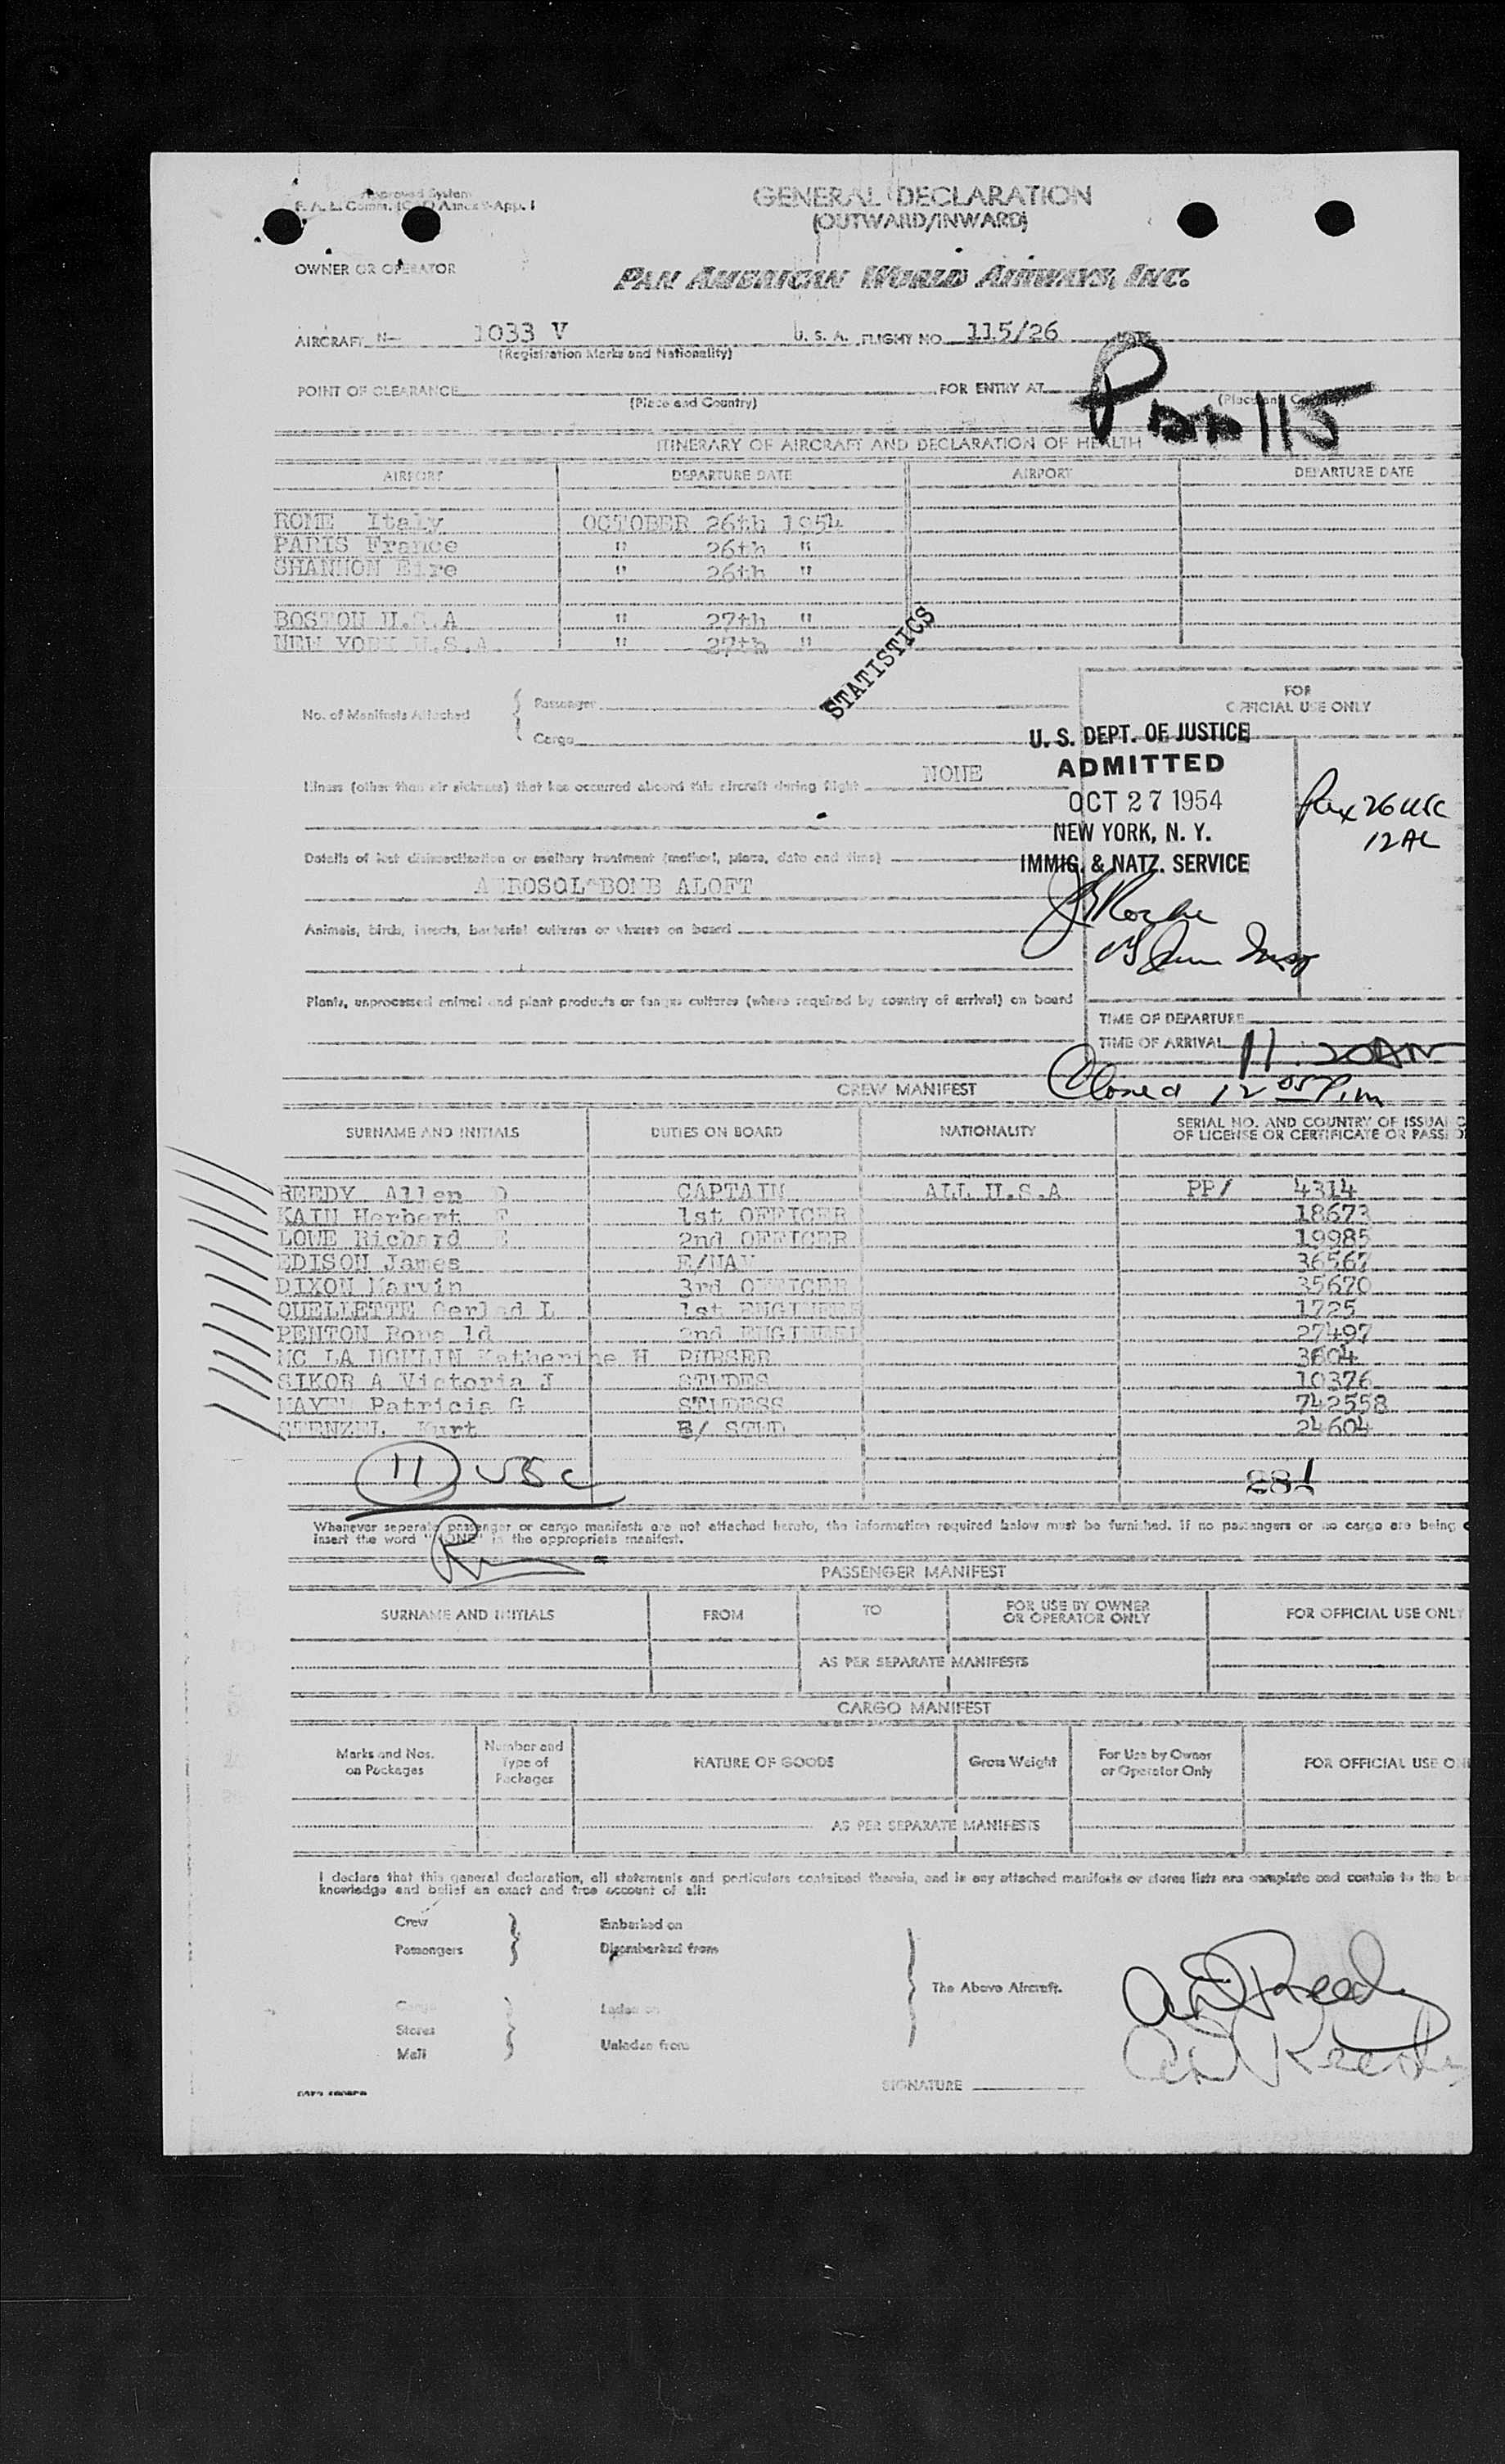 Approved System
F. A. L. Comm. (C Annex 9-App. 1
GENERAL DECLARATION
(OUTWARD/INWARD)
OWNER OR OPERATOR
PAN AMERICAN WORLD AIRWAYS, INC.
AIRCRAFT N- 1033 V U. S. A. FLIGHT NO. 115/26
(Registration Marks and Nationality)
POINT OF CLEARANCE FOR ENTRY AT
(Place and Country) (Place and Country)
Paa 115
ITINERARY OF AIRCRAFT AND DECLARATION OF HEALTH
AIRPORT DEPARTURE DATE AIRPORT DEPARTURE DATE
ROME Italy OCTOBER 26th 1954
PARIS France " 26th "
SHANNON Eire " 26th "
BOSTON U.S.A " 27th "
NEW YORK U.S.A " 27th "
STATISTICS
No. of Manifests Attached { Passenger
Cargo
FOR
OFFICIAL USE ONLY
U. S. DEPT. OF JUSTICE
ADMITTED
OCT 27 1954
NEW YORK, N. Y.
IMMIG. & NATZ. SERVICE
Pax 26 USC
12 AL
Illness (other than air sickness) that has occurred aboard this aircraft during flight NONE
Details of last disinsectization or sanitary treatment (method, place, date and time)
AEROSOL BOMB ALOFT
Animals, birds, insects, bacterial cultures or viruses on board
Plants, unprocessed animal and plant products or fungus cultures (where required by country of arrival) on board
TIME OF DEPARTURE
TIME OF ARRIVAL 11.20AM
Closed 12 05 P.m
CREW MANIFEST
SURNAME AND INITIALS DUTIES ON BOARD NATIONALITY SERIAL NO. AND COUNTRY OF ISSUANC
OF LICENSE OR CERTIFICATE OR PASSPO
REEDY Allen D CAPTAIN ALL U.S.A PP/ 4314
KAIN Herbert F 1st OFFICER 18673
LOWE Richard E 2nd OFFICER 19985
EDISON James E/NAV 36567
DIXON Marvin 3rd OFFICER 35670
OUELLETTE Gerlad L 1st ENGINEER 1725
PENTON Rona ld 2nd ENGINEER 27497
MC LA UGHLIN Katherine H PURSER 3604
SIKOR A Victoria J STUDES 10376
MAYER Patricia G STUDESS 742558
STENZEL Kurt B/ STUD 24604
11 USC
281
Whenever seperate passenger or cargo manifests are not attached hereto, the information required below must be furnished. If no passengers or no cargo are being c
insert the word "NONE" in the appropriate manifest.
PASSENGER MANIFEST
SURNAME AND INITIALS FROM TO FOR USE BY OWNER
OR OPERATOR ONLY FOR OFFICIAL USE ONLY
AS PER SEPARATE MANIFESTS
CARGO MANIFEST
Marks and Nos.
on Packages Number and
Type of
Packages NATURE OF GOODS Gross Weight For Use by Owner
or Operator Only FOR OFFICIAL USE ON
AS PER SEPARATE MANIFESTS
I declare that this general declaration, all statements and particulars contained therein, and in any attached manifests or stores lists are complete and contain to the be
knowledge and belief an exact and true account of all:
Crew Embarked on
Passengers Disembarked from
The Above Aircraft.
Cargo Laden on
Stores
Mail Unladen from
A D Reedy
A D Reedy
SIGNATURE